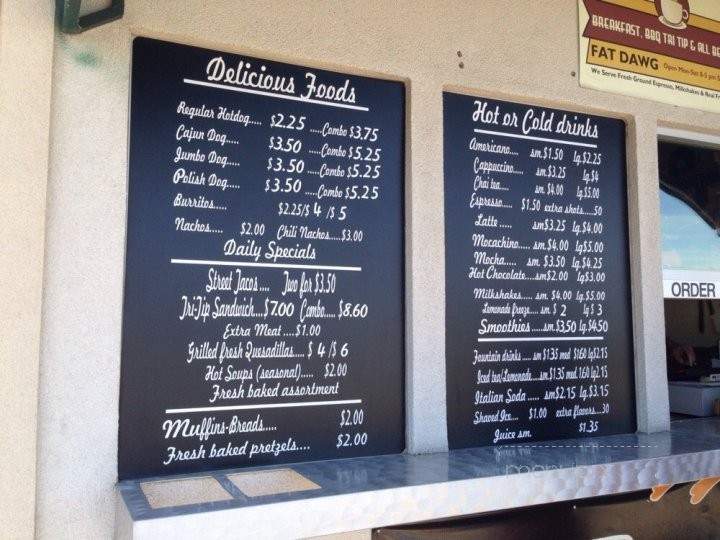 Delicious Foods
Regular Hotdog.... $2.25 ....Combo $3.75
Cajun Dog.... $3.50 ....Combo $5.25
Jumbo Dog.... $3.50 ....Combo $5.25
Polish Dog..... $3.50 ....Combo $5.25
Burritos..... $2.25/$ 4 /$ 5
Nachos..... $2.00 Chili Nachos....$3.00
Daily Specials
Street Tacos.... Two for $3.50
Tri-Tip Sandwich...$7.00 Combo.... $8.60
Extra Meat ....$1.00
Grilled fresh Quesadillas.... $ 4 /$ 6
Hot Soups (seasonal).... $2.00
Fresh baked assortment
Muffins-Breads..... $2.00
Fresh baked pretzels.... $2.00
Hot or Cold drinks
Americano..... sm.$1.50 lg.$2.25
Cappuccino..... sm $3.25 lg.$4
Chai tea..... sm. $4.00 lg.$5.00
Espresso..... $1.50 extra shots....50
Latte ..... sm$3.25 lg.$4.00
Mocachino..... sm. $4.00 lg.$5.00
Mocha..... sm. $3.50 lg.$4.25
Hot Chocolate....sm$2.00 lg$3.00
Milkshakes..... sm. $4.00 lg.$5.00
Lemonade freeze..... sm $ 2 lg $ 3
Smoothies ....sm.$3.50 lg.$4.50
Fountain drinks .... sm $1.35 med $1.60 lg$2.15
Iced tea/Lemonade....sm.$1.35 med.1.60 lg$2.15
Italian Soda ..... sm$2.15 lg.$3.15
Shaved Ice.... $1.00 extra flavors....30
Juice sm. $1.35
BREAKFAST, BBQ TRI TIP & ALL BE
FAT DAWG Open Mon-Sat 8-5 pm
We Serve Fresh Ground Espresso, Milkshakes & Real
ORDER